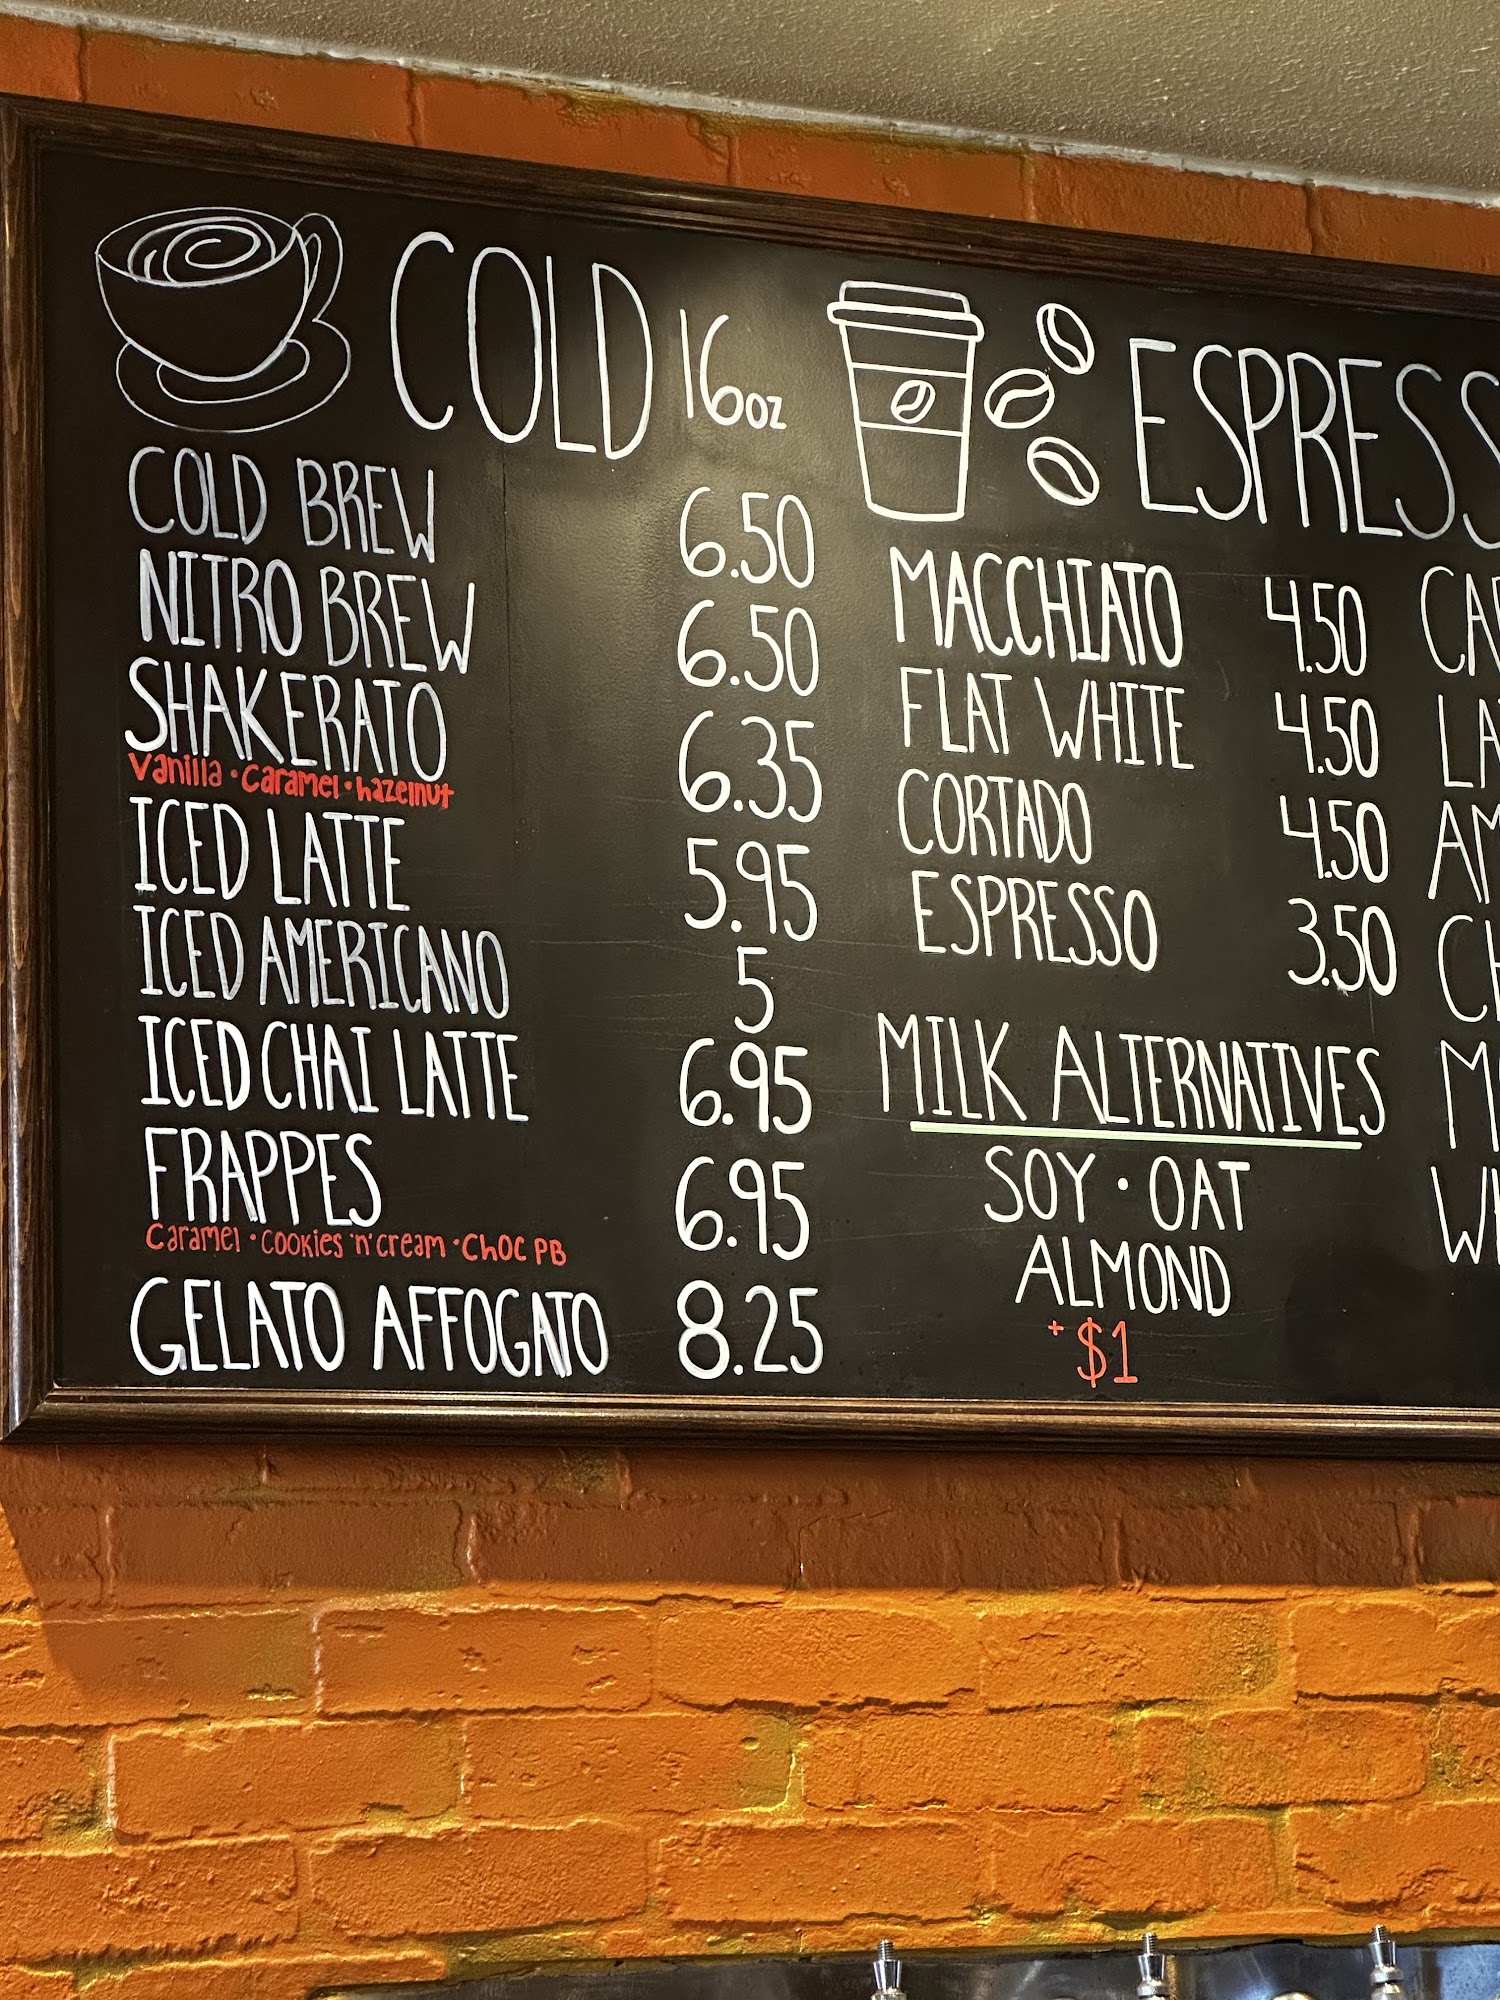 COLD 16oz
COLD BREW 6.50
NITRO BREW 6.50
SHAKERATO 6.35
Vanilla · Caramel · hazelnut
ICED LATTE 5.95
ICED AMERICANO 5
ICED CHAI LATTE 6.95
FRAPPES 6.95
Caramel · Cookies 'n' Cream · Choc PB
GELATO AFFOGATO 8.25
ESPRESS
MACCHIATO 4.50
FLAT WHITE 4.50
CORTADO 4.50
ESPRESSO 3.50
MILK ALTERNATIVES
SOY · OAT
ALMOND
+$1